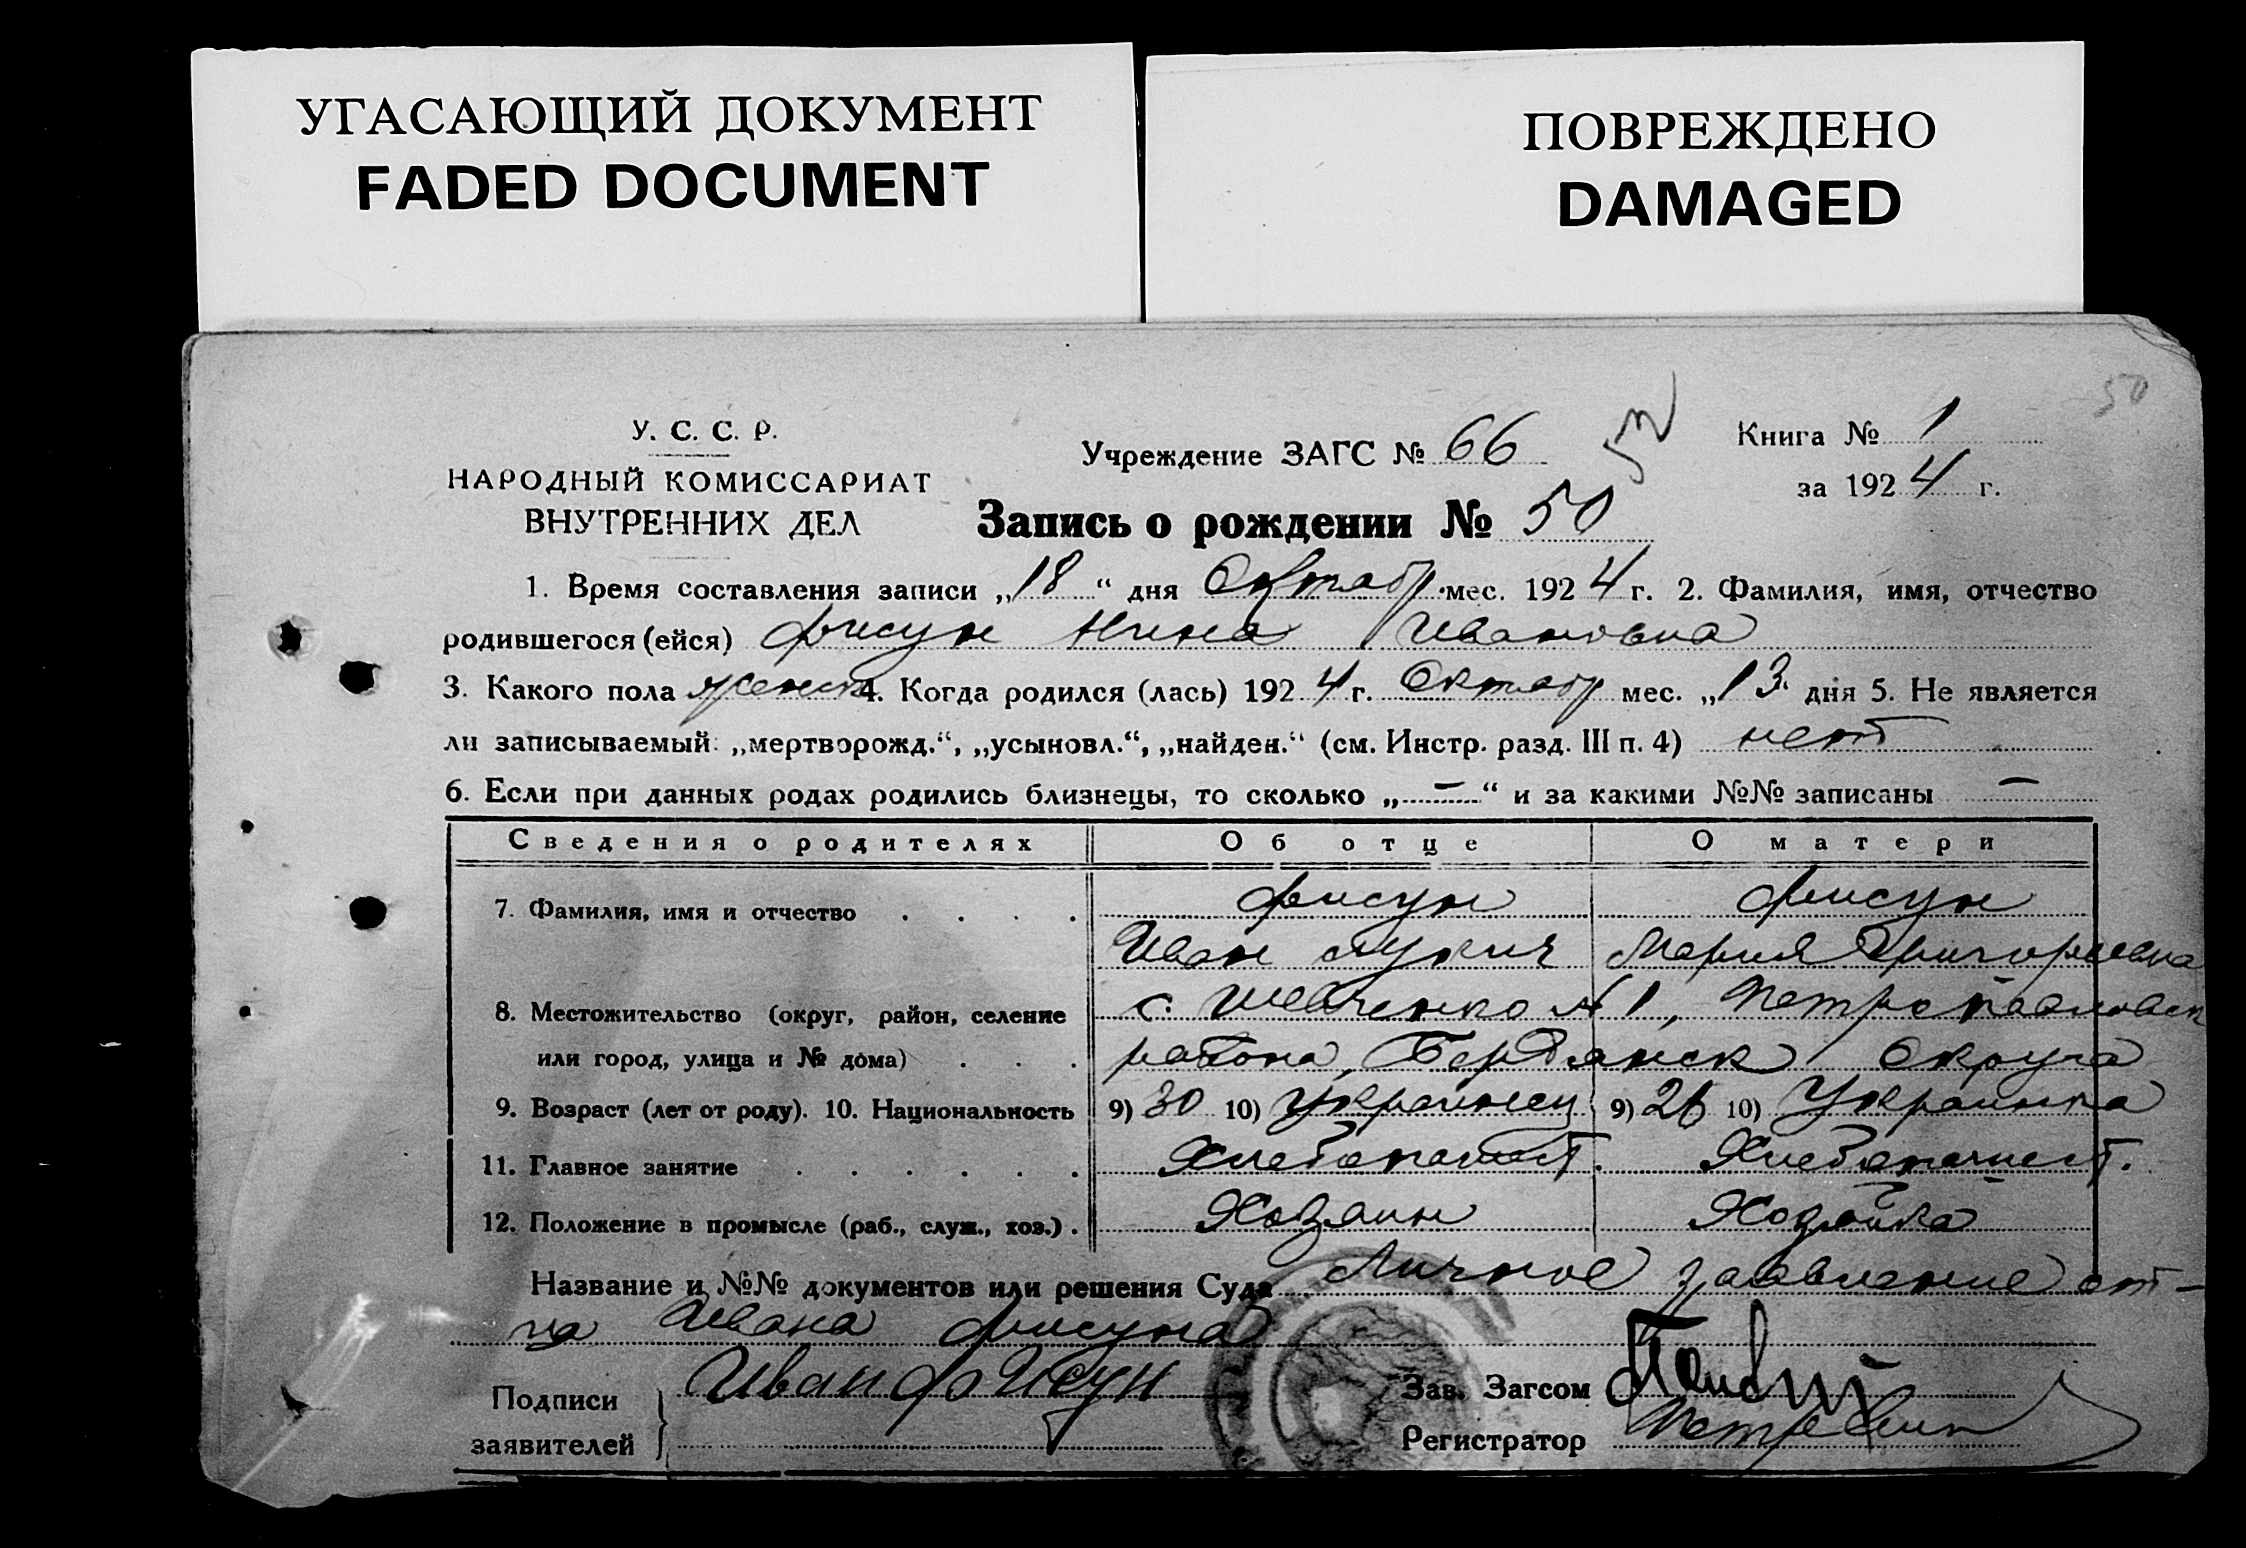 УГАСАЮЩИЙ ДОКУМЕНТ
FADED DOCUMENT
ПОВРЕЖДЕНО
DAMAGED
50
У. С. С. Р.
НАРОДНЫЙ КОМИССАРИАТ
ВНУТРЕННИХ ДЕЛ
Учреждение ЗАГС № 66
Книга № 1
за 1924 г.
Запись о рождении № 50
1. Время составления записи „18“ дня Октябр мес. 1924 г. 2. Фамилия, имя, отчество
родившегося (ейся) Фисун Нина Ивановна
3. Какого пола женск 4. Когда родился (лась) 1924 г. Октябр мес. „13 дня 5. Не является
ли записываемый: „мертворожд.“, „усыновл.“, „найден.“ (см. Инстр. разд. III п. 4) нет
6. Если при данных родах родились близнецы, то сколько „—“ и за какими №№ записаны —
Сведения о родителях Об отце О матери
7. Фамилия, имя и отчество Фисун Фисун
Иван Лукич Мария Григорьевна
8. Местожительство (округ, район, селение с. Шевченко №1, Петропавловск
или город, улица и № дома) района, Бердянск Округа
9. Возраст (лет от роду). 10. Национальность 9) 30 10) Украинец 9) 26 10) Украинка
11. Главное занятие Хлебопашест. Хлебопашест.
12. Положение в промысле (раб., служ., хоз.) Хозяин Хозяйка
Название и №№ документов или решения Суда Личное заявление от-
ца Ивана Фисуна
Подписи
заявителей
Иван Фисун
Зав. Загсом
Регистратор